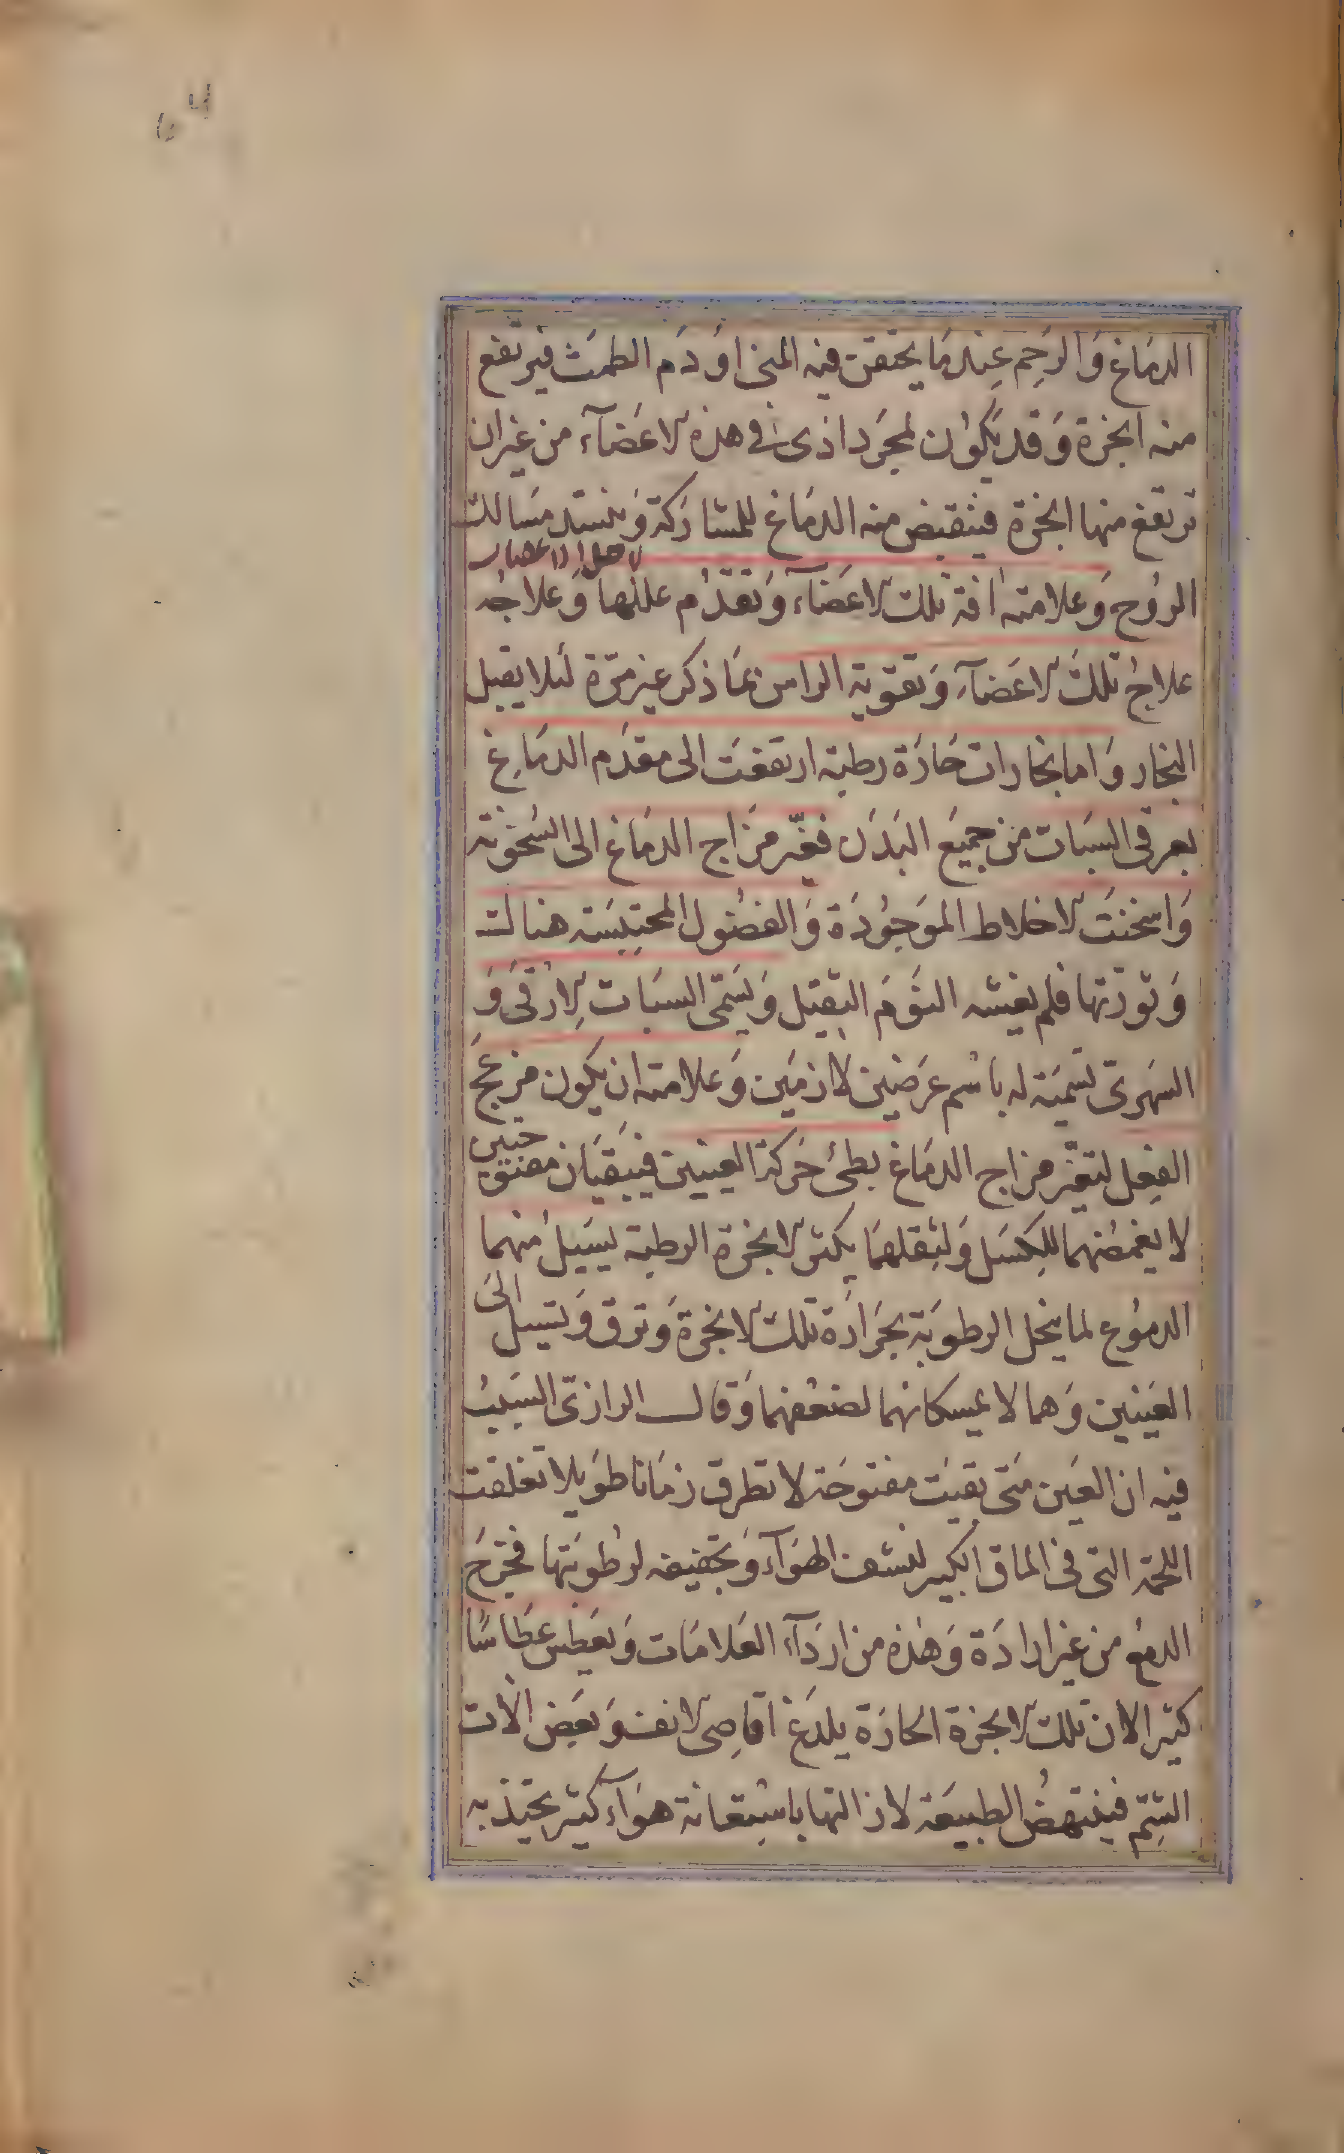 الدماغ وَالرَحِم عِندمَا يحتقن فيه المنى اوَدَم الطمَث فيرتفع
منه ابخرة وَقد يَكوُن لمجَرد اذى فى هذه الاعضَآء من غيران
ترتفع منها ابخرة فينقبض منه الدمَاغ للمشاركة وَينسَد مسَالك
الروُح وَعلامته افة تلك الاعضَآء وَتقدُم عللها وَعلاجُه
لاجل الاعصاب
علاجُ تلكَ الاعَضَآءِ وَتقوية الراس بمَا ذكر غير مَرّة لئلا يقبل
البخار وَاما بخارات حَارَة رطبة ارتفعَت الى مقدَم الدمَاغِ
بعرقى السبَات من جميَع البَدَن فغيّر مزَاج الدمَاغ الى السُخونة
وَاسخنَت الاخلاط الموَجوُدَة وَالفضُول المحتبِسَة هنالك
وَثورَتها فلم يغشه النوَمَ الثِقيل وَيسَمّى السبَات الارقىَ وَ
السَهرىّ تسمَية له باسُم عرَضيَن لازمَين وَعلامته ان يكون مزعَج
الفِعل لتغيّر مزاج الدمَاغ بطئ حَركة العينين فيَبقيَان مفتوحتين
لا يغمضُهما للِكسَل وَلثِقلهمَا بكثرة الابخرة الرطبة يسَيلُ مُنهما
الدموُع لما ينحل الرطوبَة بحَرارَة تلك الابخرةَ وَترق وَتسيل الىَ
العَينين وَهما لا يمسكانهما لضعُفهما وَقال الرازىّ السَبَبُ
فيه ان العَين متَى بقيَت مفتوحَة لا تطرف زمَانا طوَيلا تعلقت
اللحمَة التى فى الماق الكبير لنشف الهوَآء وَتجفيفه لرطُوبَتها فتخرَجَ
الدمعُ من غير ارادَة وَهذه من اردَآء العَلامَات وَيعَطِس عطَاسًا
كثيرا لان تلك الابخرة الحَارَة يلدَغ اقاصِى الانف وَبَعَض الات
الشِمّ فيَنتهِضُ الطبيعَة لازالتها باستِعَانة هوَآء كثير يجتذبه